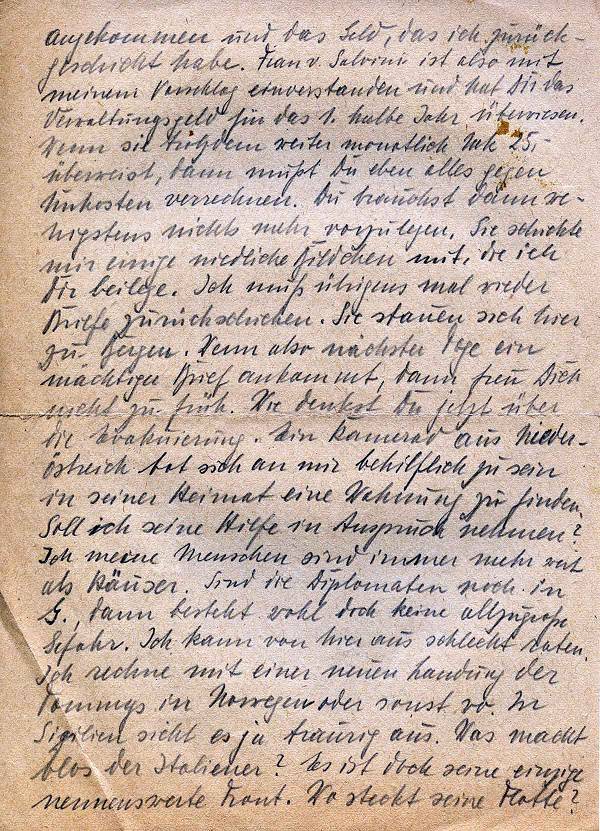 angekommen und das Geld, das ich zurück-
geschickt habe. Frau v. Salvini ist also mit
meinem Vorschlag einverstanden und hat Dir das
Verwaltungsgeld für das 1. halbe Jahr überwiesen.
Wenn sie trotzdem weiter monatlich Mk 25,-
überweist, dann mußt Du eben alles gegen
Unkosten verrechnen. Du brauchst dann we-
nigstens nichts mehr vorzulegen. Sie schickte
mir einige niedliche Bildchen mit, die ich
Dir beilege. Ich muß übrigens mal wieder
Briefe zurückschicken. Sie stauen sich hier
zu Bergen. Wenn also nächster Tage ein
mächtiger Brief ankommt, dann freu Dich
nicht zu früh. Wie denkst Du jetzt über
die Evakuierung. Ein Kamerad aus Nieder-
östreich bot sich an mir behilflich zu sein
in seiner Heimat eine Wohnung zu finden.
Soll ich seine Hilfe in Anspruch nehmen?
Ich meine Menschen sind immer mehr wert
als Häuser. Sind die Diplomaten noch in
G., dann besteht wohl doch keine allzugroße
Gefahr. Ich kann von hier aus schlecht raten.
Ich rechne mit einer neuen Landung der
Tommys in Norwegen oder sonst wo. In
Sizilien sieht es ja traurig aus. Was macht
blos der Italiener? Es ist doch seine einzige
nennenswerte Front. Wo steckt seine Flotte?